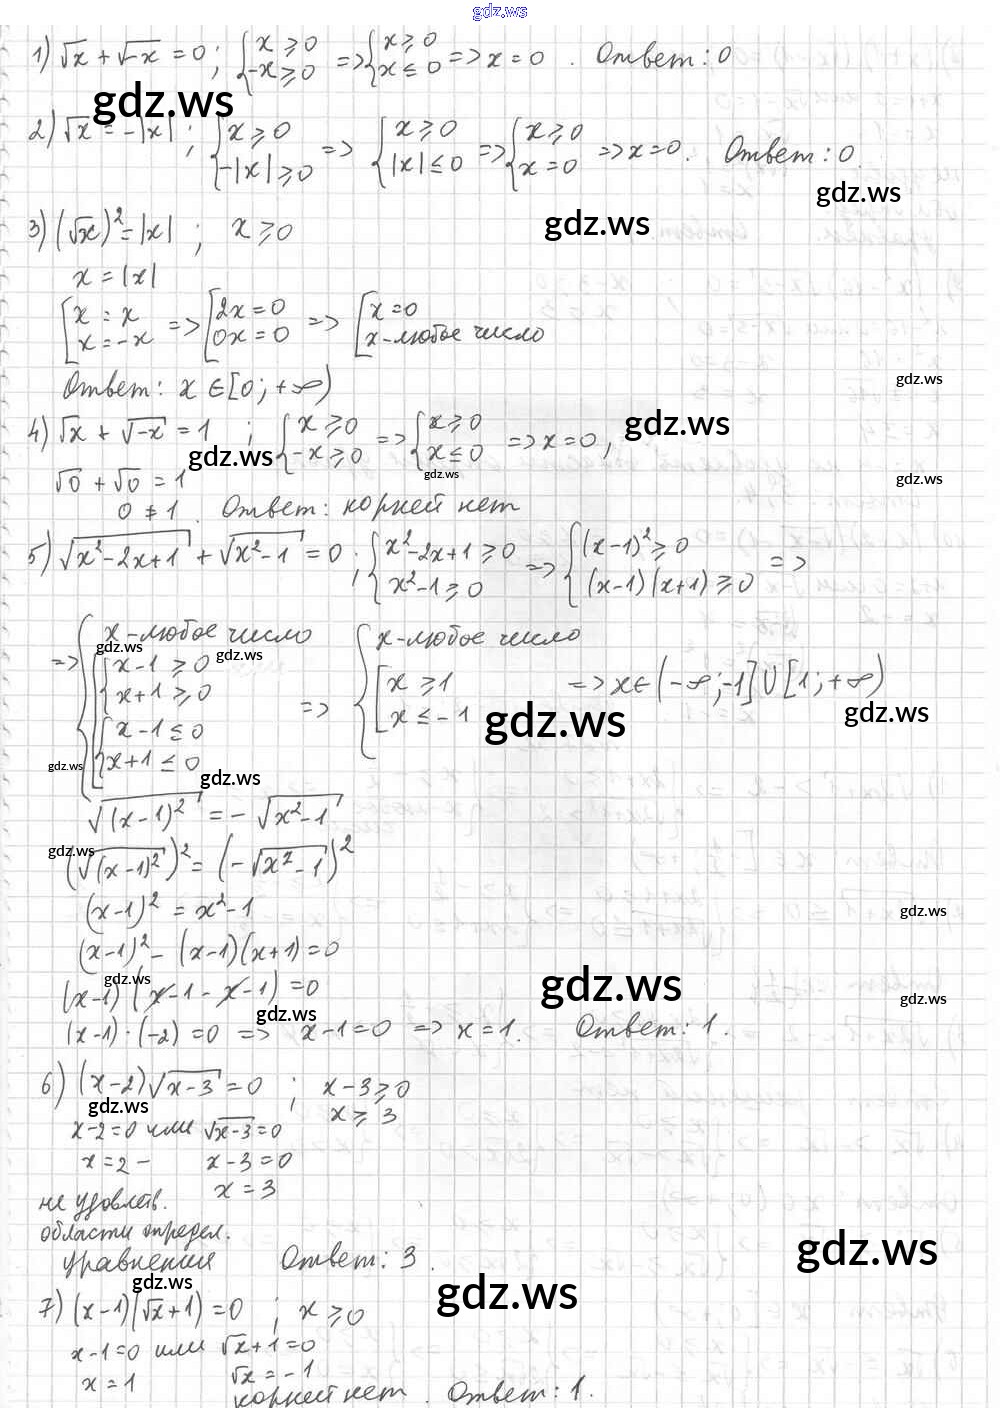 gdz.ws
1) √x + √-x = 0; { x ≥ 0 -x ≥ 0 => { x ≥ 0 x ≤ 0 => x = 0. Ответ: 0
gdz.ws
2) √x = -|x|; { x ≥ 0 -|x| ≥ 0 => { x ≥ 0 |x| ≤ 0 => { x ≥ 0 x = 0 => x = 0. Ответ: 0.
gdz.ws
gdz.ws
3) (√x)² = |x| ; x ≥ 0
x = |x|
[ x = x x = -x => [ 2x = 0 0x = 0 => [ x = 0 x - любое число
Ответ: x ∈ [0; +∞)
gdz.ws
4) √x + √-x = 1 ; { x ≥ 0 -x ≥ 0 => { x ≥ 0 x ≤ 0 => x = 0,
gdz.ws
gdz.ws
gdz.ws
gdz.ws
√0 + √0 = 1
0 ≠ 1. Ответ: корней нет
5) √x²-2x+1 + √x²-1 = 0; { x²-2x+1 ≥ 0 x²-1 ≥ 0 => { (x-1)² ≥ 0 (x-1)(x+1) ≥ 0 =>
=> { x - любое число [ { x-1 ≥ 0 x+1 ≥ 0 { x-1 ≤ 0 x+1 ≤ 0 => { x - любое число [ x ≥ 1 x ≤ -1 => x ∈ (-∞; -1] ∪ [1; +∞)
gdz.ws
gdz.ws
gdz.ws
gdz.ws
gdz.ws
gdz.ws
√(x-1)² = - √x²-1
gdz.ws
(√(x-1)²)² = (-√x²-1)²
(x-1)² = x²-1
gdz.ws
(x-1)² - (x-1)(x+1) = 0
gdz.ws
gdz.ws
(x-1)(x-1-x-1) = 0
gdz.ws
gdz.ws
(x-1)·(-2) = 0 => x-1 = 0 => x = 1. Ответ: 1.
6) (x-2)√x-3 = 0 ; x-3 ≥ 0
gdz.ws
x ≥ 3
x-2=0 или √x-3 = 0
x = 2 - x-3 = 0
x = 3
не удовлетв.
области определ.
уравнения Ответ: 3.
gdz.ws
gdz.ws
gdz.ws
7) (x-1)(√x+1) = 0 ; x ≥ 0
x-1=0 или √x+1 = 0
x = 1 √x = -1
корней нет. Ответ: 1.